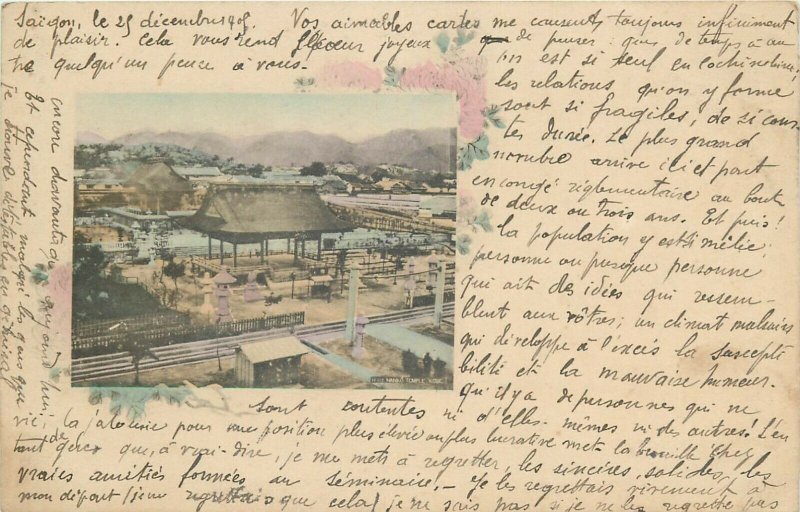 Saïgon, le 25 décembre 1905. Vos aimables cartes me causent toujours infiniment
de plaisir. Cela vous rend le cœur joyeux de penser que de temps à au
tre quelqu'un pense à vous. on est si seul en Cochinchine,
les relations qu'on y forme
sont si fragiles, de si cour
tes durée. Le plus grand
nombre arrive ici et part
en congé réglementaire au bout
de deux ou trois ans. Et puis!
la population y est si mêlée,
personne ou presque personne
qui ait des idées qui ressem-
blent aux vôtres; un climat malsain
qui développe à l'excès la suscepti
bilité et la mauvaise humeur.
Qu'il y a de personnes qui ne
sont contentes ni d'elles-mêmes ni des autres! L'en
vie, la jalousie pour une position plus élevée ou plus lucrative met la brouille chez
tant de gens que, à vrai dire, je me mets à regretter, les sincères, solides, les
vraies amitiés formées au séminaire, - Je les regrettais vivement à
mon départ je ne regrettais que cela, je ne sais pas si je ne les regrette pas
encore davantage aujourd'hui,
Et cependant malgré les quelques
je
NANKO TEMPLE KOBE